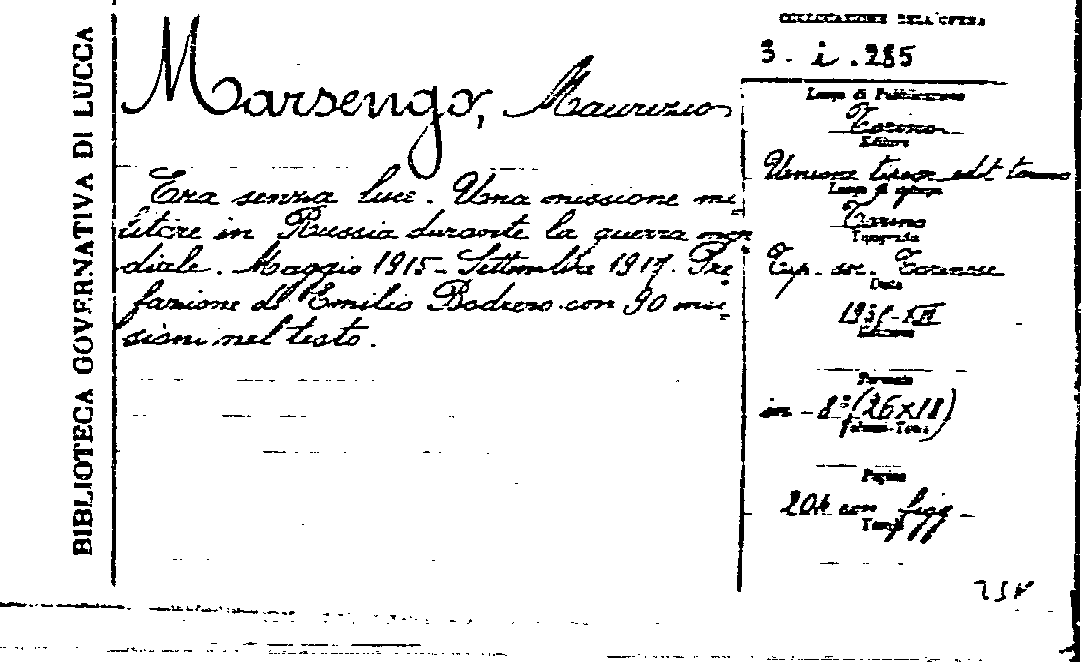 BIBLIOTECA GOVERNATIVA DI LUCCA
Marsengo, Maurizio
Era senza luce. Una missione mi=
litare in Russia durante la guerra mon
diale. Maggio 1915 - Settembre 1917. Pre
fazione di Emilio Bodrero con 90 inci=
sioni nel testo.
COLLOCAZIONE DELL'OPERA
3. i. 285
Luogo di Pubblicazione
Torino
Editore
Unione tipogr. edit. torinese
Luogo di
Torino
Tipografia
Tip. soc. Torinese
Data
XIII
Edizione
Formato
in - 8° (26x18)
Pagine
204 con figg